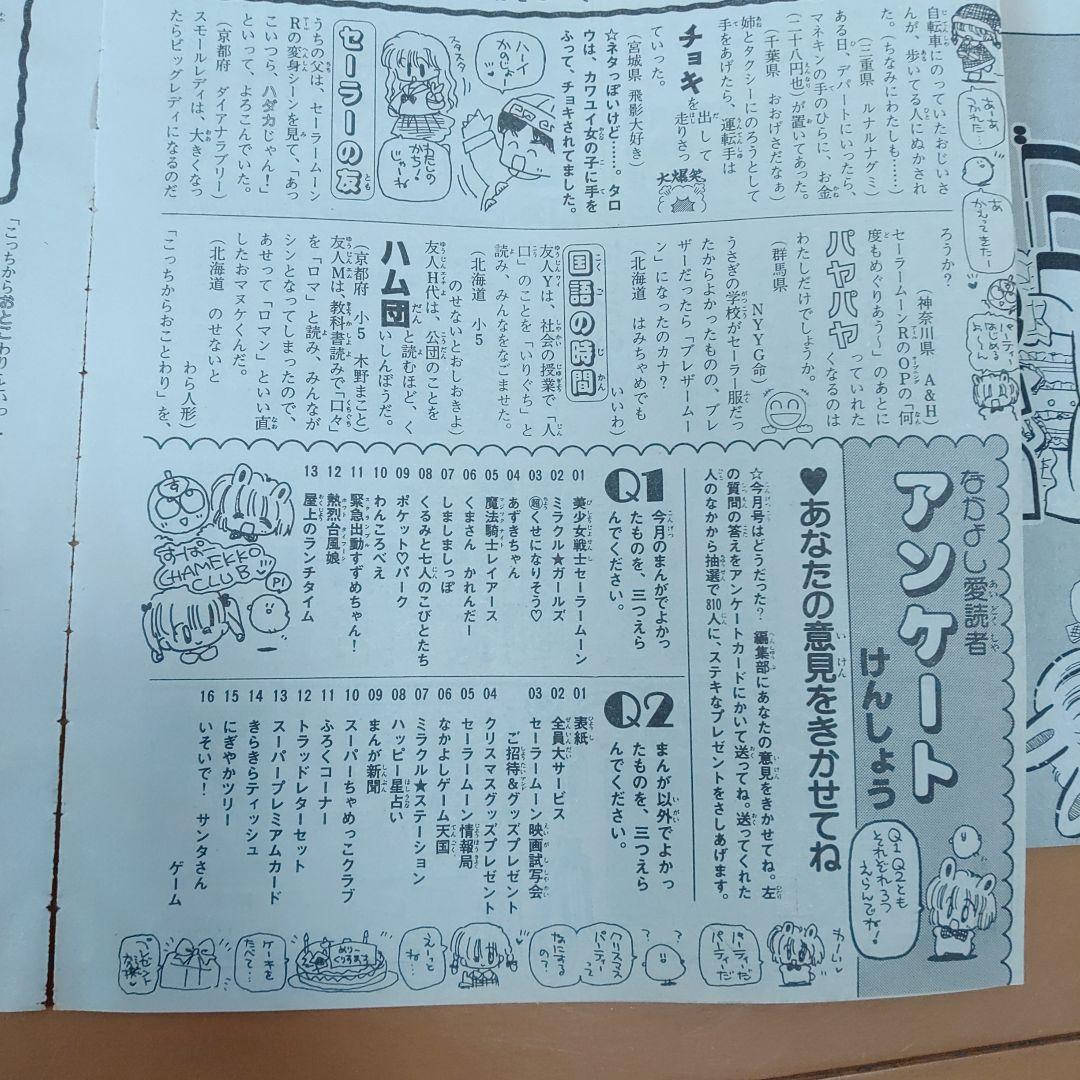 自転車にのっていたおじいさ
んが、歩いてる人にぬかされ
た。（ちなみにわたしも……）
（三重県　ルナルナグミ）
ある日、デパートにいったら、
マネキンの手のひらに、お金
（二十八円也）が置いてあった。
（千葉県　おおげさだなぁ）
姉とタクシーにのろうとして
手をあげたら、運転手は
チョキを出して
走りさっ
ていった。
大爆笑
（宮城県　飛影大好き）
☆ネタっぽいけど……。タロ
ウは、カワユイ女の子に手を
ふって、チョキされてました。
ハーイ
かのじょ
スタスタ
わたしの
かち！
じゃーね
セーラーの友
うちの父は、セーラームーン
Rの変身シーンを見て、「あっ
こいつら、ハダカじゃん！」
といって、よろこんでいた。
（京都府　ダイアナラブリー）
スモールレディは、大きくなっ
たらビッグレディになるのだ
ろうか？
（神奈川県　A&H）
セーラームーンRのOPの「何
度もめぐりあう〜」のあとに
パヤパヤっていれた
くなるのは
わたしだけでしょうか。
（群馬県　NYYG命）
うさぎの学校がセーラー服だっ
たからよかったものの、ブレ
ザーだったら「ブレザームー
ン」になったのカナ？
（北海道　はみちゃめでも
いいわ）
国語の時間
友人Yは、社会の授業で「人
口」のことを「いりぐち」と
読み、みんなをなごませた。
（北海道　小5
のせないとおしおきよ）
友人H代は、公団のことを
ハム団と読むほど、く
いしんぼうだ。
（京都府　小5　木野まこと）
友人Mは、教科書読みで「口々」
を「ロマ」と読み、みんなが
シンとなってしまったので、
あせって「ロマン」といい直
したおマヌケくんだ。
（北海道　のせないと
わら人形）
「こっちからおことわり」を、
「こっちからおとこわり」といっ
あーあ
あ
かえってきたー
パーティー
はじめる
よーん
なかよし愛読者
アンケート
けんしょう
♥あなたの意見をきかせてね
☆今月号はどうだった？　編集部にあなたの意見をきかせてね。左
の質問の答えをアンケートカードにかいて送ってね。送ってくれた
人のなかから抽選で810人に、ステキなプレゼントをさしあげます。
Q1Q2とも
それぞれ3つ
えらんでね！
Q1
今月のまんがでよかっ
たものを、三つえら
んでください。
01　美少女戦士セーラームーン
02　ミラクル★ガールズ
03　超くせになりそう♡
04　あずきちゃん
05　魔法騎士レイアース
06　くまさん　かれんだー
07　しましましっぽ
08　くるみと七人のこびとたち
09　ポケット♡パーク
10　わんころべえ
11　緊急出動すずめちゃん！
12　熱烈台風娘
13　屋上のランチタイム
すーぱー
CHAMEKKO
CLUB
P1
Q2
まんが以外でよかっ
たものを、三つえら
んでください。
01　表紙
02　全員大サービス
03　セーラームーン映画試写会
ご招待＆グッズプレゼント
04　クリスマスグッズプレゼント
05　セーラームーン情報局
06　なかよしゲーム天国
07　ミラクル★ステーション
08　ハッピー星占い
09　まんが新聞
10　スーパーちゃめっこクラブ
11　ふろくコーナー
12　トラッドレターセット
13　スーパープレミアムカード
14　きらきらティッシュ
15　にぎやかツリー
16　いそいで！　サンタさん
ゲーム
わーい
パーティだ
パーティだ
?
?
クリスマス
パーティって
なにする
の？
えーっと
ね…
めりー
くりすます
ケーキを
たべて…
プレゼント